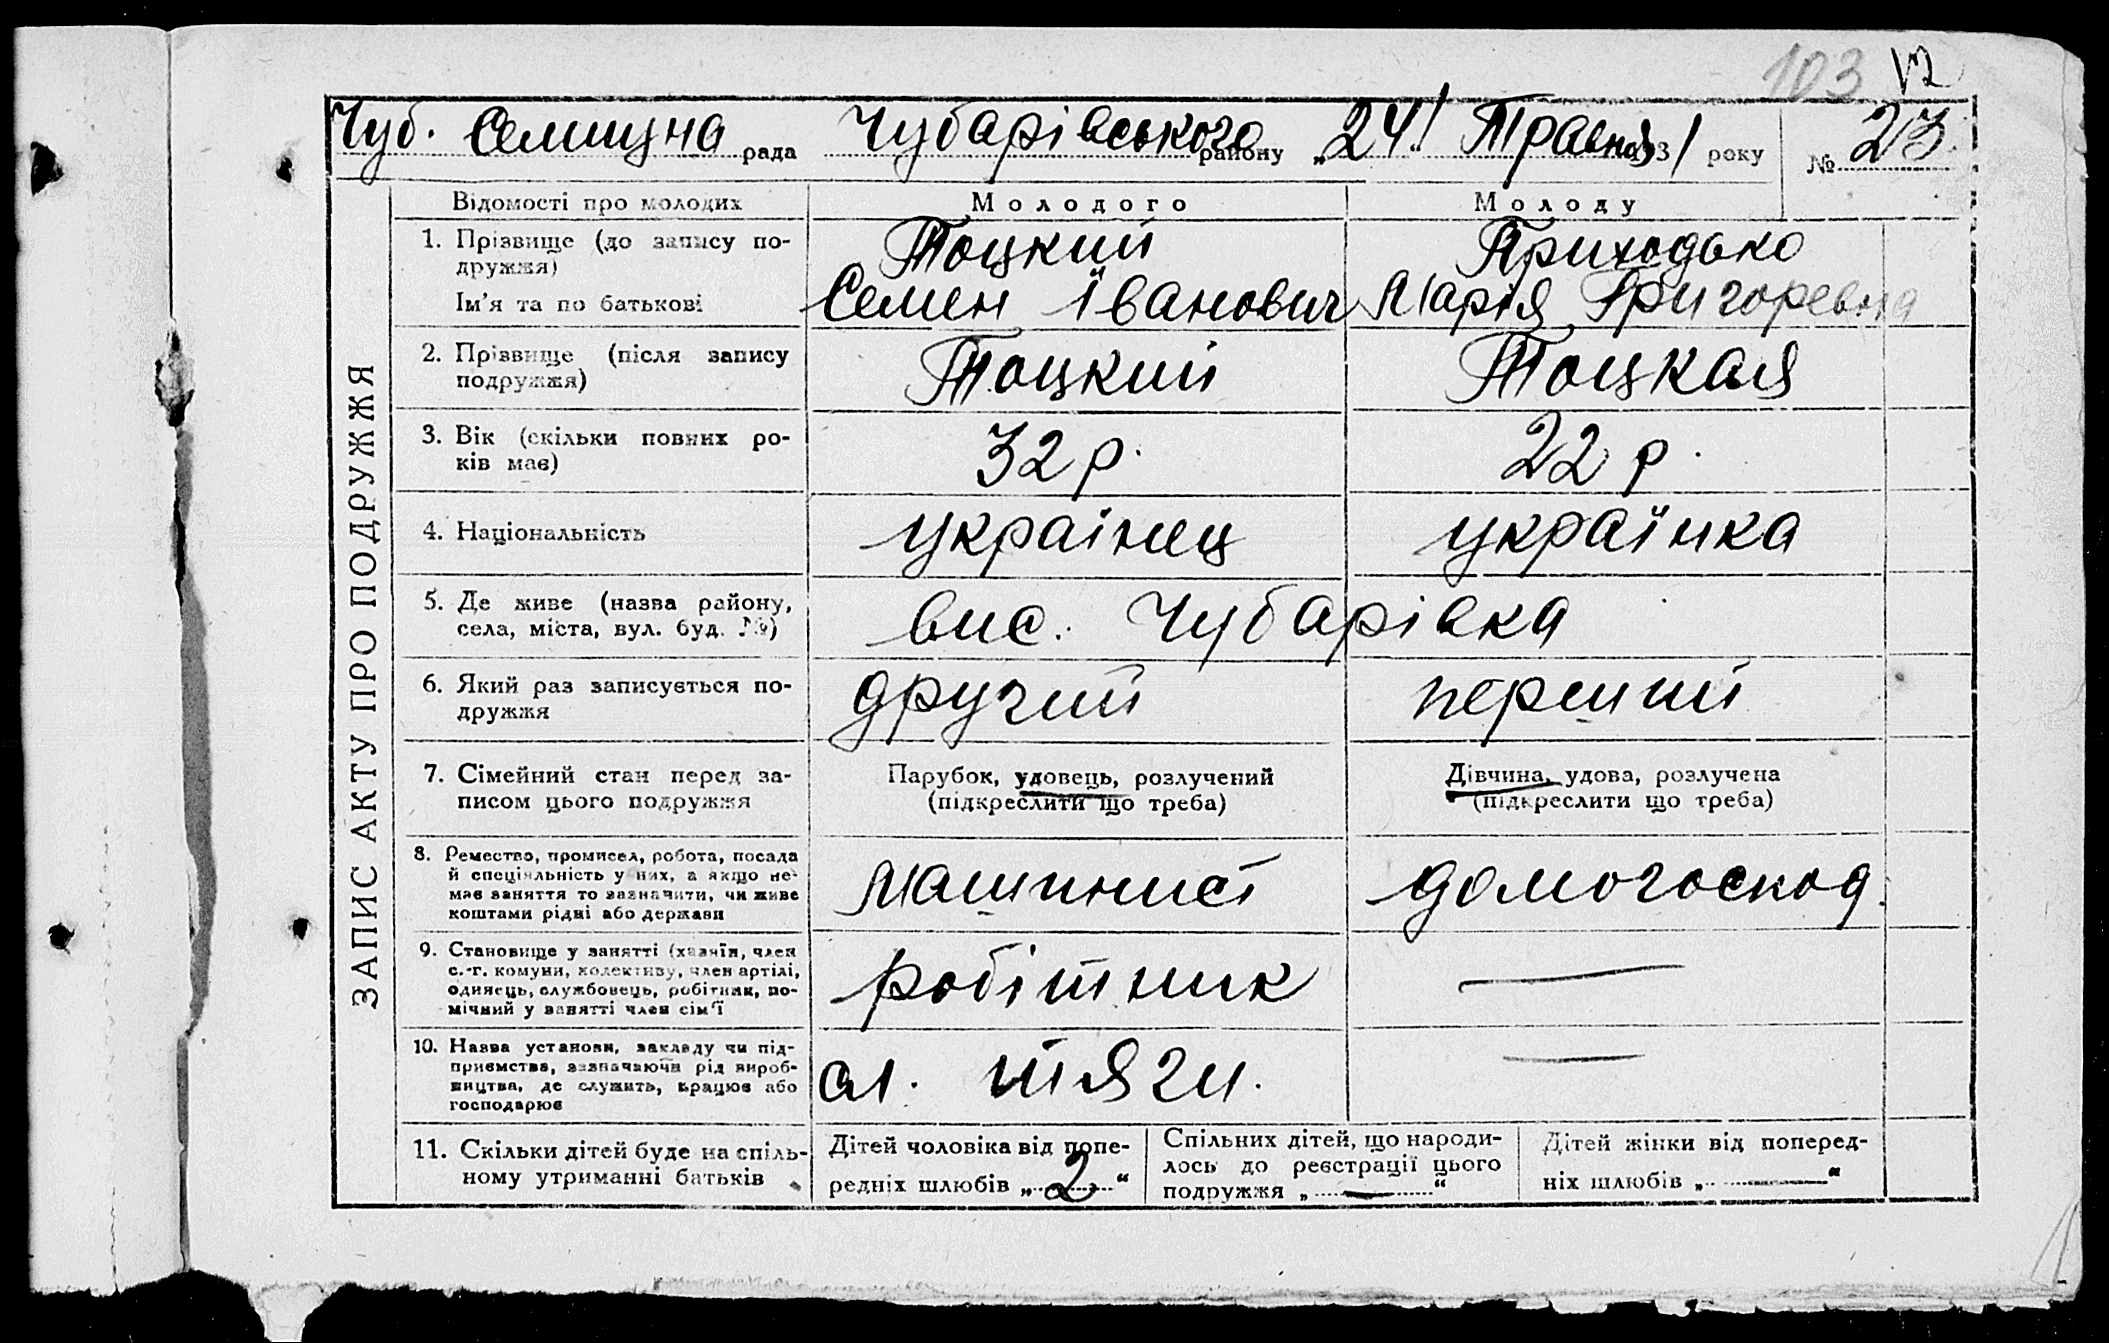 103 V2
Чуб. Селищна рада Чубарівського району „24" Травня 1931 року № 23.
Відомості про молодих Молодого Молоду
1. Прізвище (до запису по- Тоцкий Приходько
дружжя)
Ім'я та по батькові Семен Іванович Марія Григоревна
2. Прізвище (після запису Тоцкий Тоцкая
подружжя)
3. Вік (скільки повних ро- 32 р. 22 р.
ків має)
4. Національність украінец украінка
5. Де живе (назва району, вис. Чубарівка
села, міста, вул. буд. №)
6. Який раз записується по- другий перший
дружжя
7. Сімейний стан перед за- Парубок, удовець, розлучений Дівчина, удова, розлучена
писом цього подружжя (підкреслити що треба) (підкреслити що треба)
8. Ремество, промисел, робота, посада
й спеціяльність у них, а якщо не- Машиніст домогоспод.
має заняття то зазначити, чи живе
коштами рідні або держави
9. Становище у занятті (хазяїн, член
с.-г. комуни, колективу, член артілі, робітник —
одинець, службовець, робітник, по-
мічний у занятті член сім'ї
10. Назва установи, закладу чи під-
приємства, зазначаючи рід вироб- сл. тяги. —
ництва, де служить, працює або
господарює
11. Скільки дітей буде на спіль- Дітей чоловіка від попе- Спільних дітей, що народи- Дітей жінки від поперед-
ному утриманні батьків редніх шлюбів „2" лось до реєстрації цього ніх шлюбів „—"
подружжя „—"
ЗАПИС АКТУ ПРО ПОДРУЖЖЯ